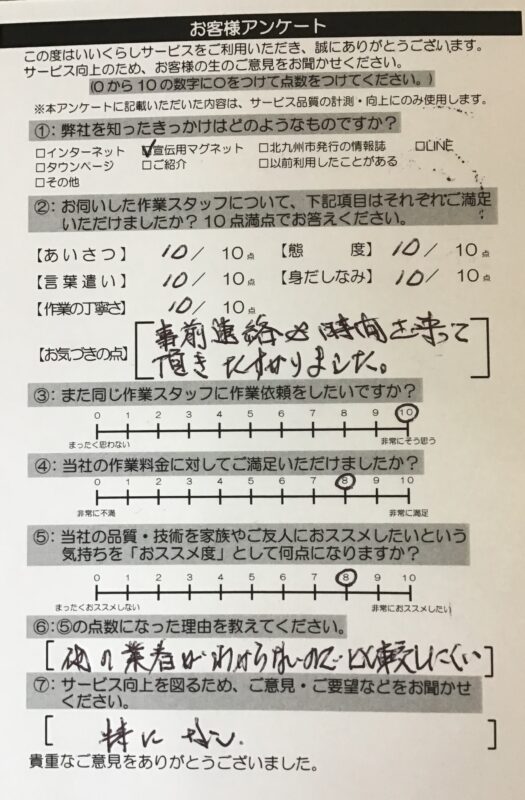 お客様アンケート
この度はいいくらしサービスをご利用いただき、誠にありがとうございます。
サービス向上のため、お客様の生のご意見をお聞かせください。
(0から10の数字に○をつけて点数をつけてください。)
※本アンケートに記載いただいた内容は、サービス品質の計測・向上にのみ使用します。
①：弊社を知ったきっかけはどのようなものですか？
□インターネット ☑宣伝用マグネット □北九州市発行の情報誌 □LINE
□タウンページ □ご紹介 □以前利用したことがある
□その他
②：お伺いした作業スタッフについて、下記項目はそれぞれご満足
いただけましたか？10点満点でお答えください。
【あいさつ】 10/10点 【態度】 10/10点
【言葉遣い】 10/10点 【身だしなみ】 10/10点
【作業の丁寧さ】 10/10点
【お気づきの点】 事前連絡や時間
頂きたすかりました。
③：また同じ作業スタッフに作業依頼をしたいですか？
0 1 2 3 4 5 6 7 8 9 10
まったく思わない 非常にそう思う
④：当社の作業料金に対してご満足いただけましたか？
0 1 2 3 4 5 6 7 8 9 10
非常に不満 非常に満足
⑤：当社の品質・技術を家族やご友人におススメしたいという
気持ちを「おススメ度」として何点になりますか？
0 1 2 3 4 5 6 7 8 9 10
まったくおススメしない 非常におススメしたい
⑥：⑤の点数になった理由を教えてください。
他の業者がわからないので比較しにくい
⑦：サービス向上を図るため、ご意見・ご要望などをお聞かせ
ください。
特になし.
貴重なご意見をありがとうございました。